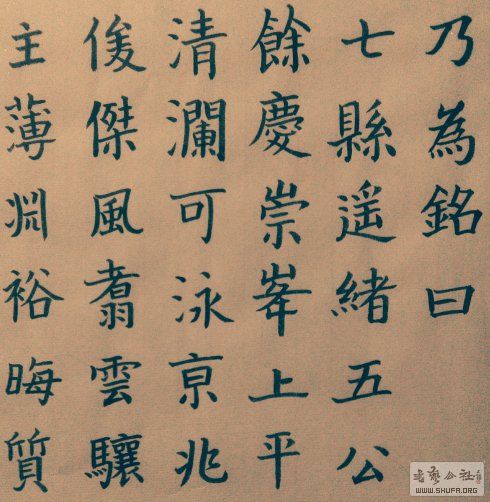 乃為銘曰
七縣遥緒五公
餘慶崇峯上平
清瀾可泳京兆
俊傑風翥雲驤
主薄淵裕晦質
WWW.SHUFA.ORG